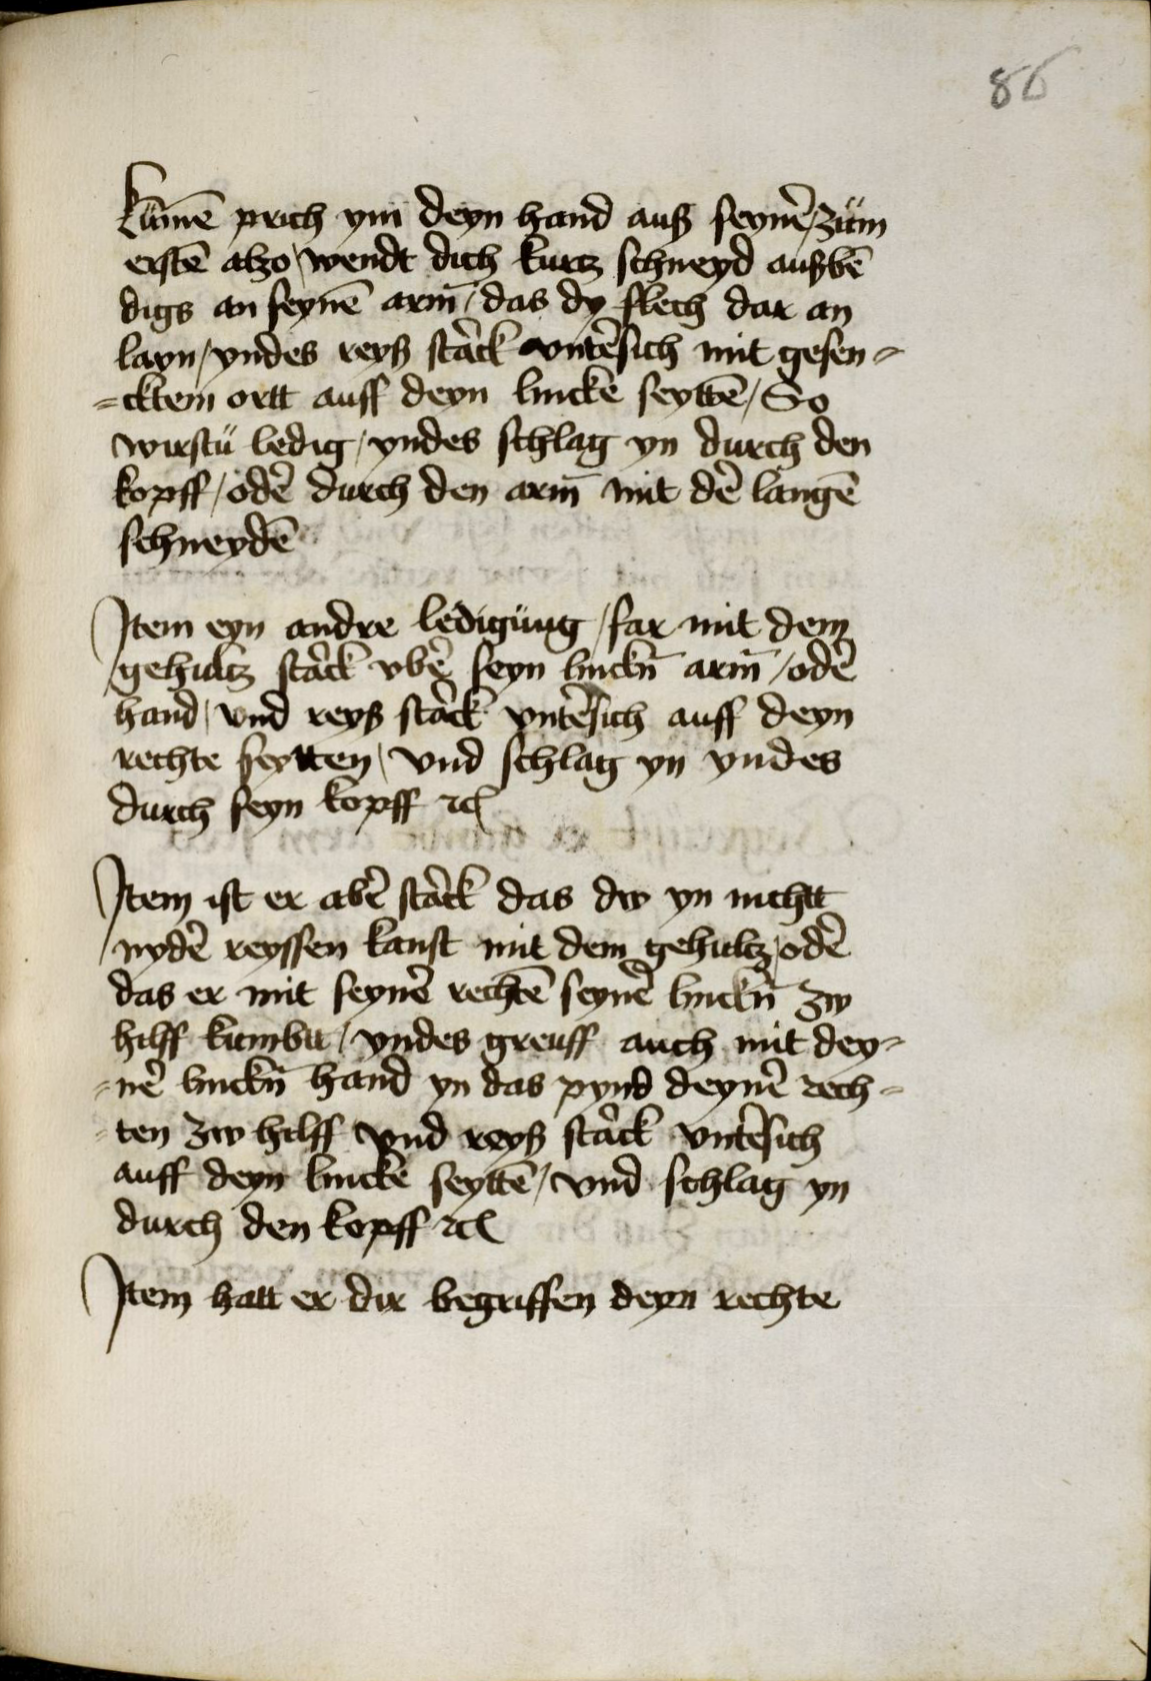 86
kümē prich ym deyn hand auß seynē / züm
erstē alzo / wendt dich kurtz schneyd außbē
digs an seynē arm̄ / das dy flech dar an
layn / yndes reyß starck vntersich mit gesen=
=cktem ortt auff deyn lincke seyttē / So
wirstü ledig / yndes schlag yn durch den
kopff / oder durch den arm̄ mit der langē
schneydē
Item eyn andre ledigüng / far mit dem
gehultz starck vber seyn linckn̄ arm̄ / oder
hand / vnd reyß starck vntersich auff deyn
rechte seytten / vnd schlag yn yndes
durch seyn kopff ꝛc
Item ist er aber starck das dw yn nichtt
nyder reyssen kanst mit dem gehultz / oder
das er mit seyner rechtē seyner linckn̄ zw
hilff kumbtt / yndes greuff auch mit dey=
=ner linckn̄ hand yn das pynd deyner rech=
=ten zw hilff vnd reyß starck vntersich
auff deyn lincke seyttē / vnd schlag yn
durch den kopff ꝛc
Item hatt er dir begriffen deyn rechte